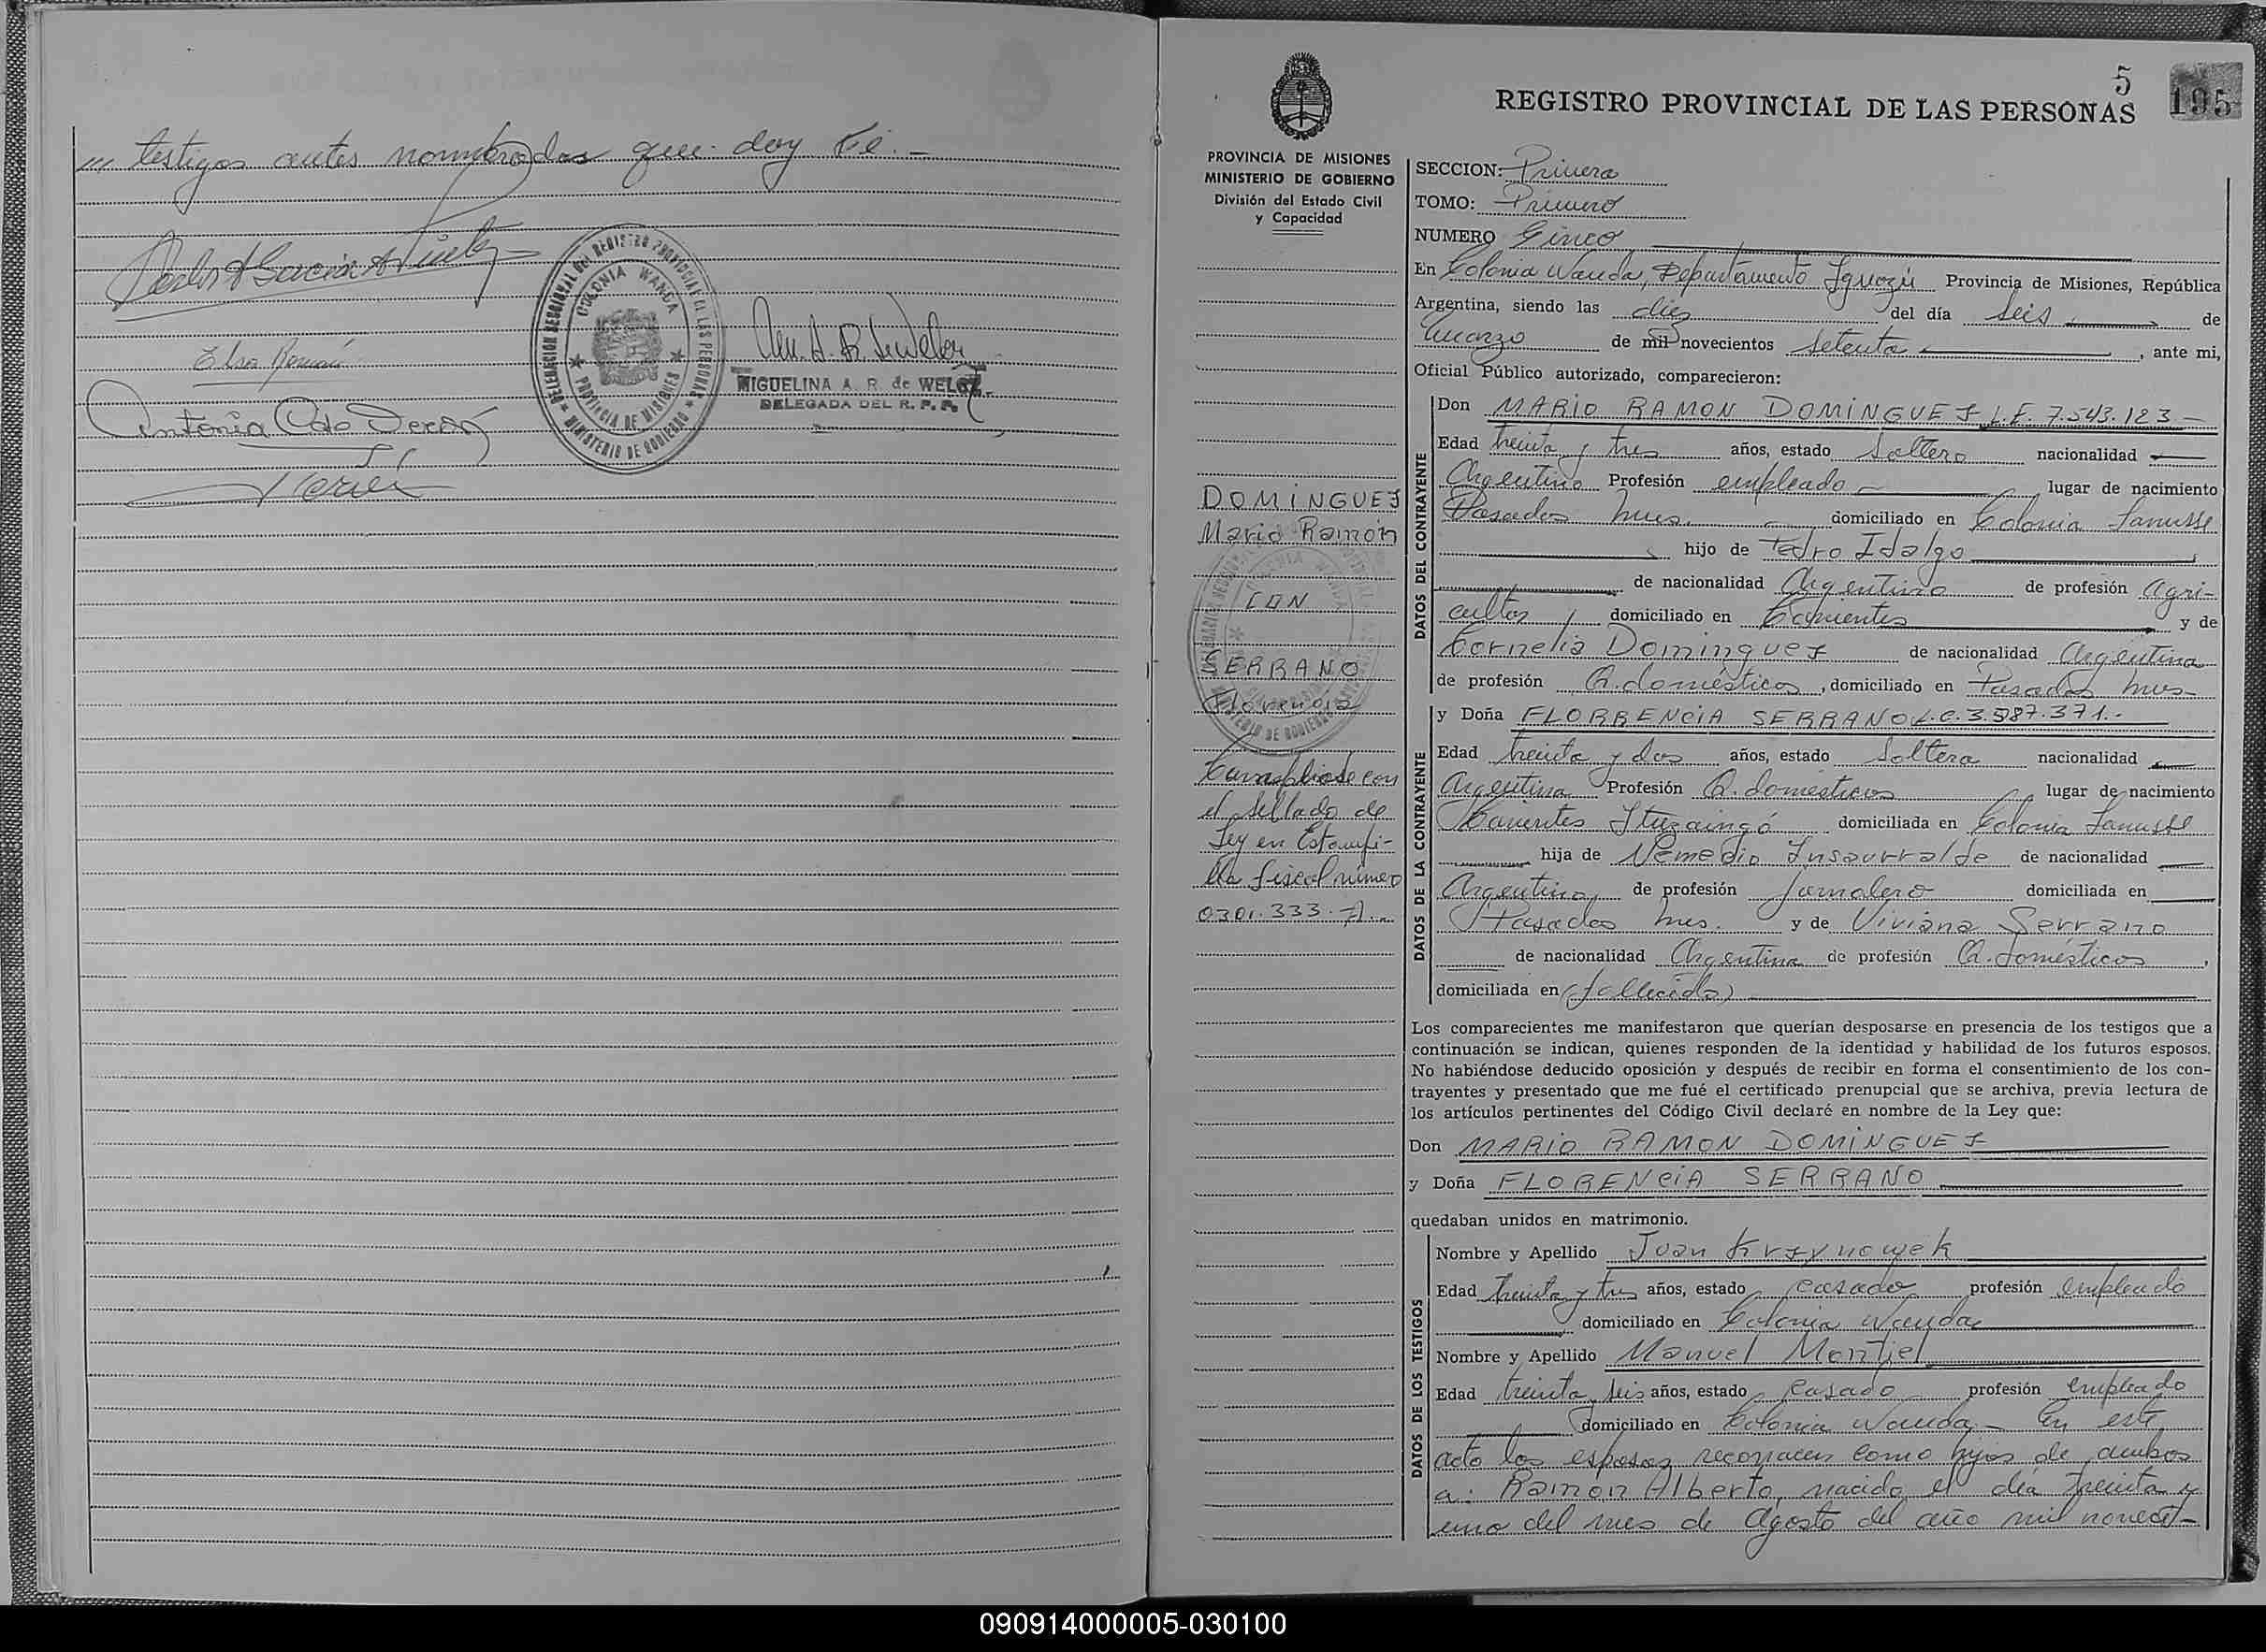 /// testigos antes nombrados que doy Fé.-
Elsa Román
DELEGACION REGIONAL DEL REGISTRO PROVINCIAL DE LAS PERSONAS
COLONIA WANDA
PROVINCIA DE MISIONES
MINISTERIO DE GOBIERNO
MIGUELINA A. R. de WELER
DELEGADA DEL R. P. P.
5
195
REGISTRO PROVINCIAL DE LAS PERSONAS
PROVINCIA DE MISIONES
MINISTERIO DE GOBIERNO
División del Estado Civil
y Capacidad
DOMINGUEZ
Mario Ramón
CON
SERRANO
Florencia
el sellado de
Ley en Estampi-
lla fiscal número
0301.333.A.-
SECCION: Primera
TOMO: Primero
NUMERO Cinco
En Colonia Wanda, Departamento Iguazú Provincia de Misiones, República
Argentina, siendo las diez del día seis de
marzo de mil novecientos setenta , ante mi,
Oficial Público autorizado, comparecieron:
DATOS DEL CONTRAYENTE
Don MARIO RAMON DOMINGUEZ L.E. 7.543.123-
Edad treinta y tres años, estado soltero nacionalidad
Argentino Profesión empleado lugar de nacimiento
Posadas Mnes. domiciliado en Colonia Lanusse
hijo de Pedro Idalgo
de nacionalidad Argentino de profesión Agri-
cultor domiciliado en Corrientes y de
Cornelia Dominguez de nacionalidad Argentina
de profesión Q.domésticos , domiciliado en Posadas Mnes-
DATOS DE LA CONTRAYENTE
y Doña FLORRENCIA SERRANO L.C. 3.987.371.-
Edad treinta y dos años, estado soltera nacionalidad
Argentina Profesión Q.domésticos lugar de nacimiento
Corrientes Ituzaingó domiciliada en Colonia Lanusse
hija de Nemedio Insaurralde de nacionalidad
Argentino de profesión Jornalero domiciliada en
Posadas Mnes. y de Viviana Serrano
de nacionalidad Argentina de profesión Q.domésticos ,
domiciliada en (fallecida)
Los comparecientes me manifestaron que querían desposarse en presencia de los testigos que a
continuación se indican, quienes responden de la identidad y habilidad de los futuros esposos.
No habiéndose deducido oposición y después de recibir en forma el consentimiento de los con-
trayentes y presentado que me fué el certificado prenupcial que se archiva, previa lectura de
los artículos pertinentes del Código Civil declaré en nombre de la Ley que:
Don MARIO RAMON DOMINGUEZ
y Doña FLORENCIA SERRANO
quedaban unidos en matrimonio.
DATOS DE LOS TESTIGOS
Nombre y Apellido Juan
Edad treinta y tres años, estado casado profesión empleado
domiciliado en Colonia Wanda
Nombre y Apellido Manuel Montiel
Edad treinta seis años, estado casado profesión empleado
domiciliado en Colonia Wanda- En este
acto los esposos reconocen como hijos de ambos
a: Ramon Alberto, nacido el día treinta y
uno del mes de Agosto del año mil novecié-
090914000005-030100